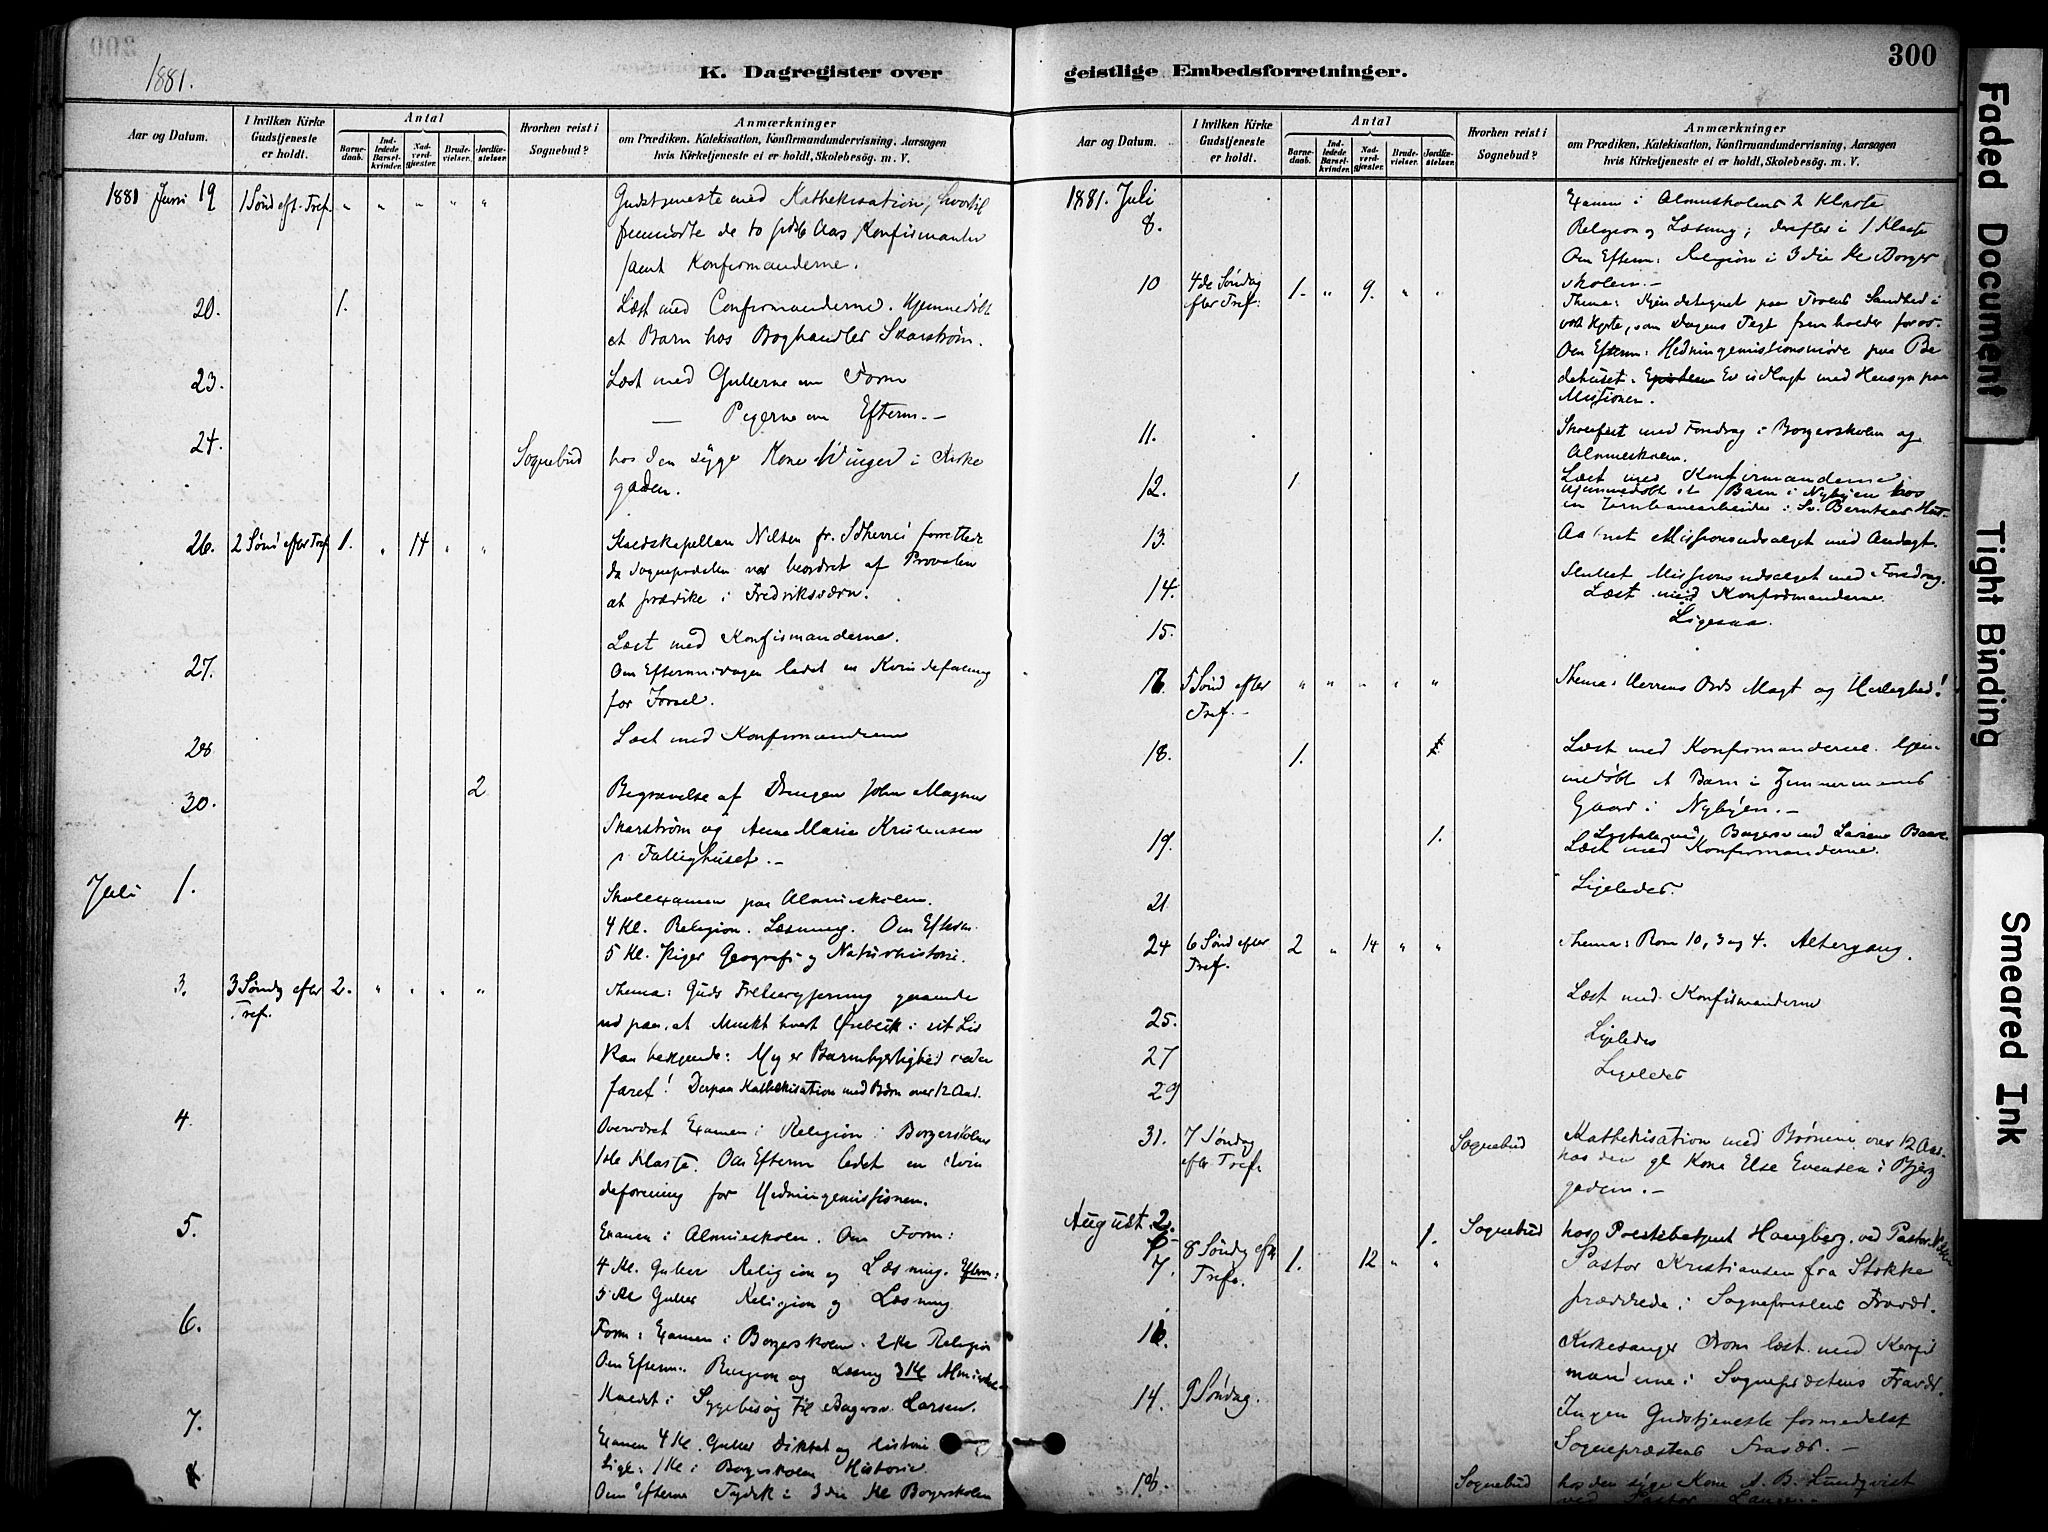 1881.
K. Dagregister over
Aar og Datum.
I hvilken Kirke Gudstjeneste er holdt.
Antal
Barne-daab.
Ind-ledede Barsel-kvinder.
Nad-verd-gjester.
Brude-vielser.
Jordfæ-stelser.
Hvorhen reist i Sognebud?
Anmærkninger
om Prædiken, Katekisation, Konfirmandundervisning, Aarsagen
hvis Kirketjeneste ei er holdt, Skolebesøg. m. V.
1881 Juni 19 1 Sønd eft. Tref. " " " " " Gudstjeneste med Kathekisation, hvortil
fremmødte de to Aars Konfirmanter
samt Konfirmanderne.
20. 1. Læst med Confirmanderne. Hjemmedøbt
et Barn hos Boghandler Skarstrøm.
23. Læst med Gutterne om Form
— Pigerne om Efterm. —
24. Sognebud hos den syge Kone Winger i Kirke
gaden.
26. 2 Sønd efter Tref 1. " 14 " " Nilsen fr. forrettede
da Sognepresten var beordret af Provsten
at prædike i Fredriksværn.
Læst med Konfirmanderne.
27. Om Eftermiddagen ledet en Kvindeforening
for Israel.
28 Læst med Konfirmanderne
30. 2 Begravelse af Drengen John Magnus
Skarstrøm og Anna Marie Kristensen
i Fattighuset. —
Juli 1. Skoleexamen paa Almueskolen.
4 Kl. Religion. Læsning. Om Efterm.
5 Kl. Piger Geografi og Naturhistorie.
3. 3 Søndg efter Tref. 2. " " " " Thema: Guds Frelsergjerning
ud paa, at hvert i sit Liv
kan bekjende: Mig er Barmhjertighed veder
faret! Derpaa Kathekisation med Børn over 12 Aar.
4. Overværet Examen i Religion i Borgerskolens
1ste Klasse. Om Efterm ledet en Kvin
deforening for Hedningemissionen.
5. Examen i Almueskolen. Om Form:
4 Kl. Gutter Religion og Læsning. Efterm:
5 Kl Gutter Religion og Læsning
6. Form: Examen i Borgerskolen. 2 Kl Religion
Om Efterm. Religion og Læsning 3 Kl
Kaldet i Sygebesøg til Larsen.
7. Examen 4 Kl. Gutter Diktat og Historie
Lige: 1 Kl i Borgerskolen Historie.
Om Efterm Tydsk i 3 die Kl Borgerskolen
geistlige Embedsforretninger.
300
Aar og Datum.
I hvilken Kirke Gudstjeneste er holdt.
Antal
Barne-daab.
Ind-ledede Barsel-kvinder.
Nad-verd-gjester.
Brude-vielser.
Jordfæ-stelser.
Hvorhen reist i Sognebud?
Anmærkninger
om Prædiken, Katekisation, Konfirmandundervisning, Aarsagen
hvis Kirketjeneste ei er holdt, Skolebesøg. m. V.
1881. Juli
8. Examen i Almueskolens 2 Klasse
Religion og Læsning; derefter i 1 Klasse
Om Efterm: Religion i 3 die Kl Borger
skolen. —
10 4de Søndag efter Tref. 1. " 9. " " Thema: Kjendetegnet paa Troens Sandhed i
vort Hjerte, som Dagens Text fremholder for os.
Om Efterm: Hedningemissionsmøde paa Be
dehuset. med Hensyn paa
Missionen.
11. Skolefest med Foredrag i Borgerskolen og
Almueskolen.
12. 1 Læst med Konfirmanderne.
Hjemmedøbt et Barn i Nybyen hos
en Jernbanearbeider i Sv. Berntsens Hus.
13. Aabnet Missionsudsalget med Andagt.
14. Sluttet Missionsudsalget med Foredrag.
Læst med Konfirmanderne.
15. Ligesaa.
17. 5 Sønd efter Tref. — " " " " " Thema: Herrens Ords Magt og Herlighed!
18. 1. Læst med Konfirmanderne. Hjem-
medøbt et Barn i Zimmermans
Gaard i Nybyen. —
19. 1. Larsens
Læst med Konfirmanderne.
21 Ligeledes.
24 6 Sønd efter Tref. 2 " 14 " " Thema: Rom 10, 3 og 4. Altergang.
25. Læst med Konfirmanderne
27 Ligeledes
29 Ligeledes
31. 7 Søndag efter Tref. Sognebud Kathekisation med Børnene over 12 Aar.
hos den gl Kone Else Evensen i Bjerg
gaden. —
August 2. Sognebud hos Haugberg, ved Pastor
6 1.
7. 8 Søndg eft Tref. 1. 12 " " Pastor Kristiansen fra Stokke
prædikede i Sognepræstens Fravær.
Kirkesanger læst med Konfir
manderne i Sognepræstens Fravær.
14. 9 Søndag. Ingen Gudstjeneste formedelst
Sognepræstens Fravær. —
Sognebud hos den syge Kone A. B. Lundqvist
ved Pastor
Faded Document
Tight Binding
Smeared Ink